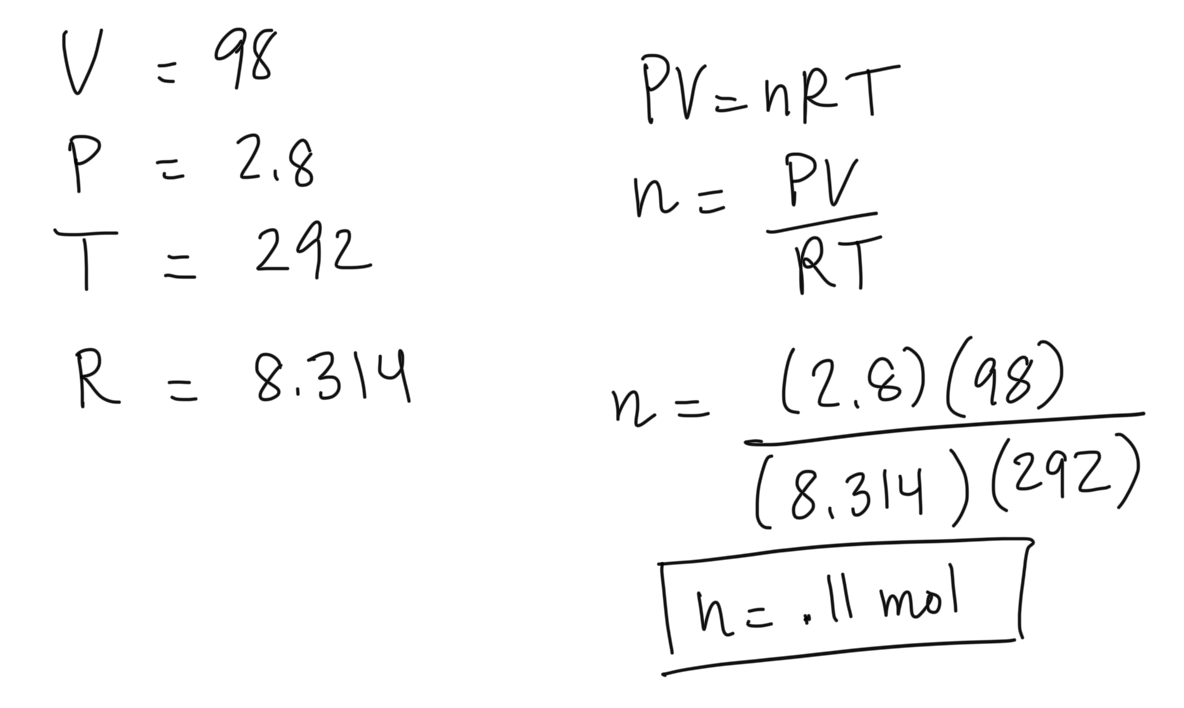 V = 98
P = 2.8
T = 292
R = 8.314
PV = nRT
n = PV
RT
n = (2.8)(98)
(8.314)(292)
n = .11 mol